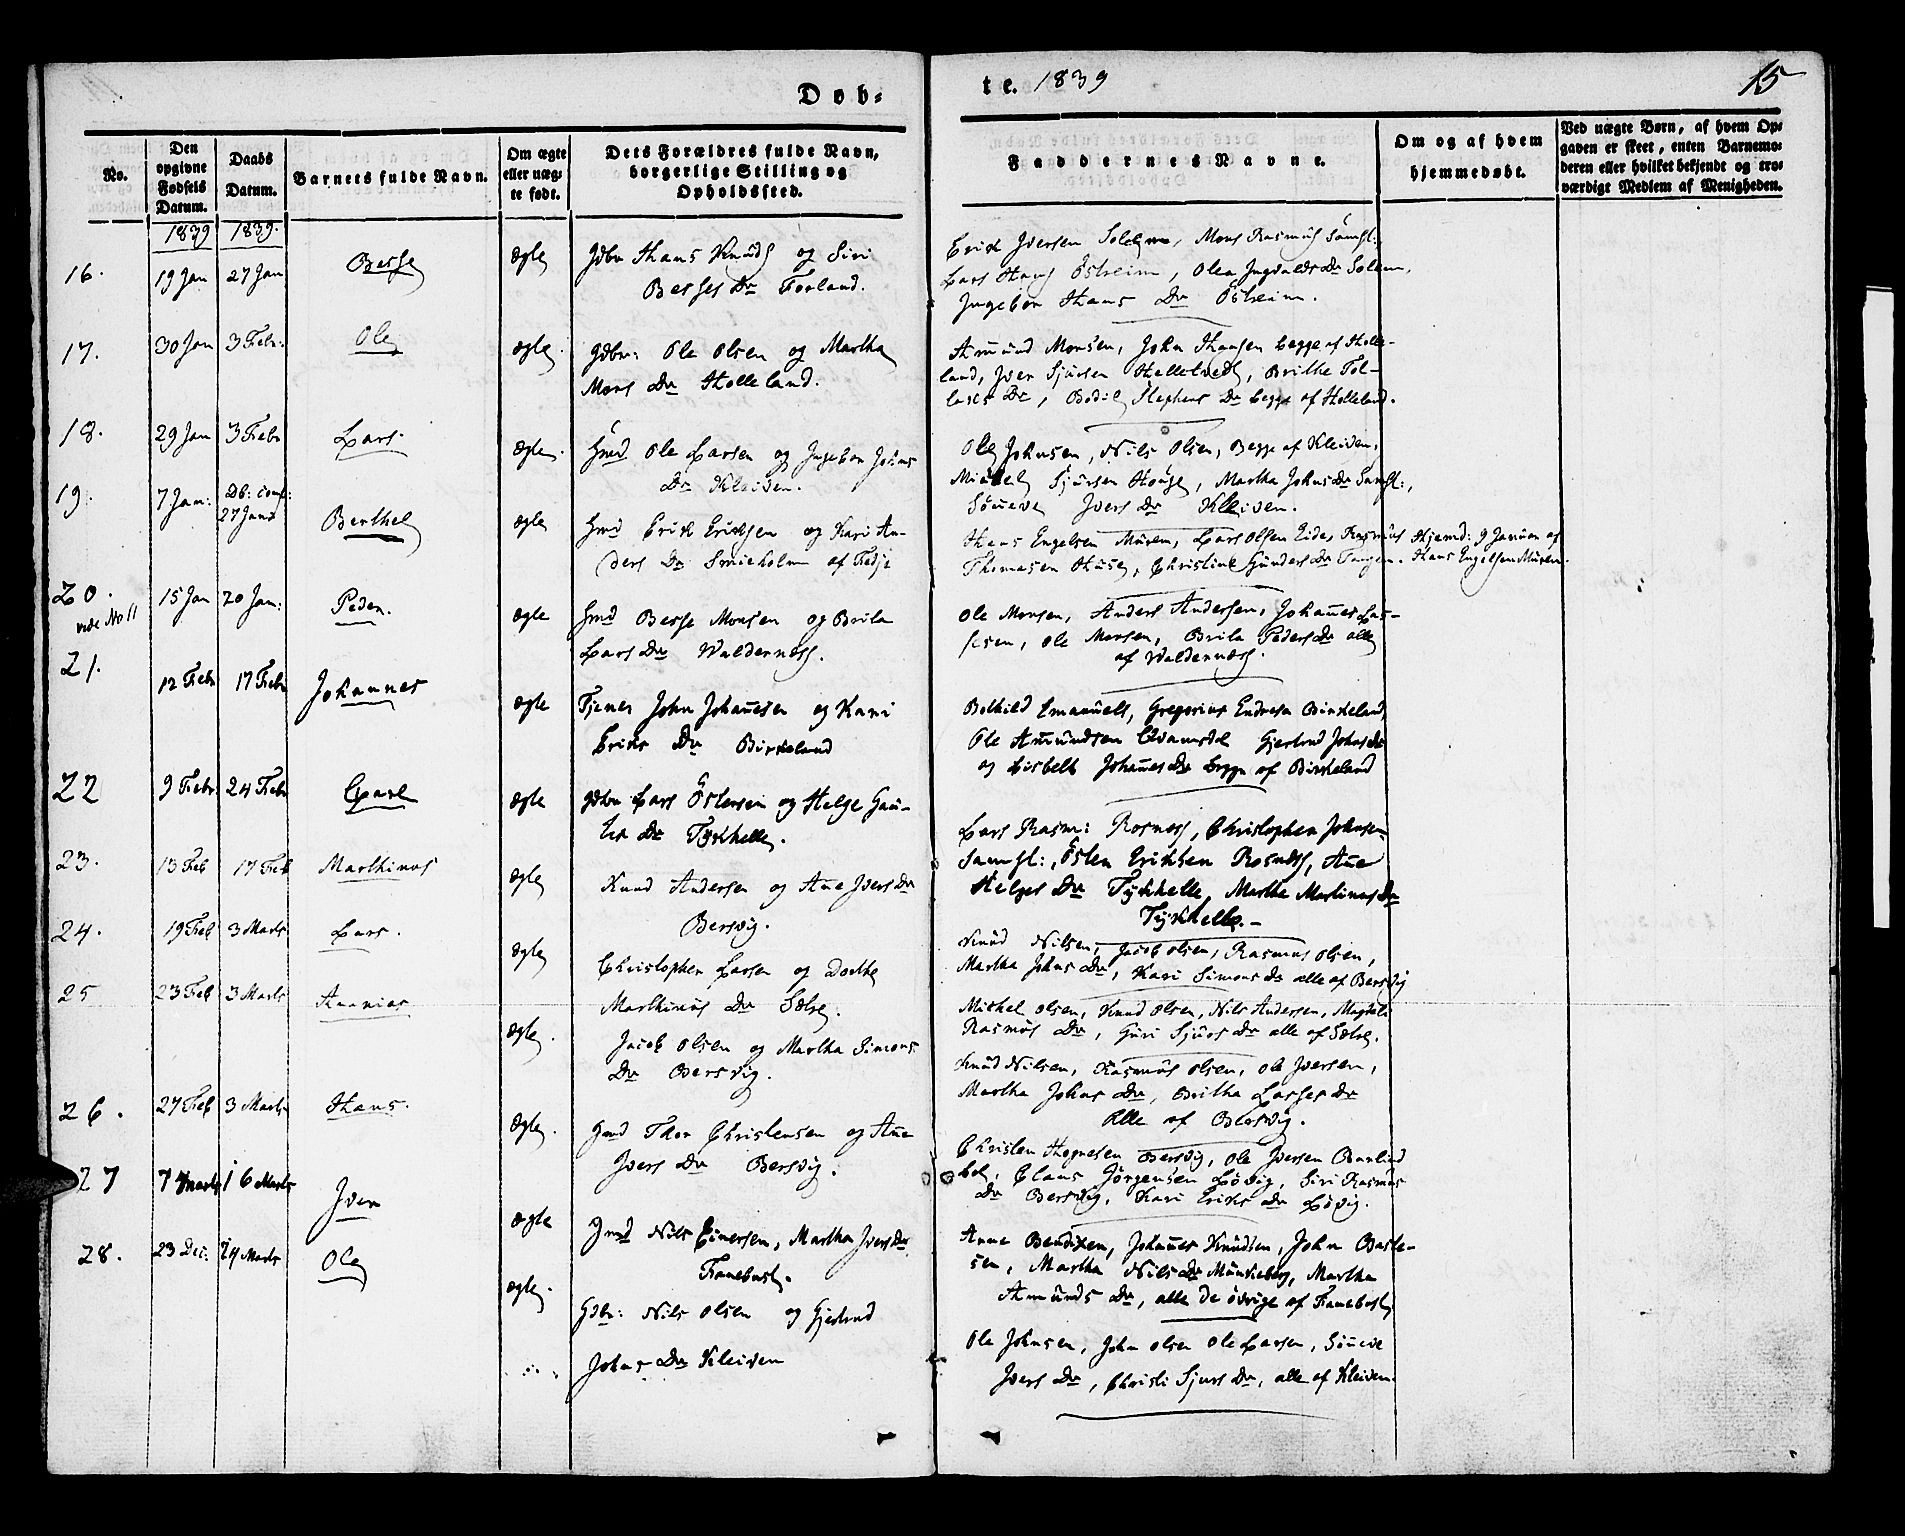 Døb-
te. 1839
15
No.
Den opgivne Fødsels Datum.
Daabs Datum.
Barnets fulde Navn.
Om ægte eller uægte født.
Dets Forældres fulde Navn, borgerlige Stilling og Opholdssted.
Faddernes Navne.
Om og af hvem hjemmedøbt.
Ved uægte Børn, af hvem Opgaven er skeet, enten Barnemoderen eller hvilket bekjendt og troværdigt Medlem af Menigheden.
1839 1839.
16. 19 Jan 27 Jan Besse Ægte Gdbr Hans Knuds og Siri
Besses Dr Forland.
Erik Iversen Mons Rasmus Samst:
Lars Hans Østreim, Olea Ingvalds Dr
Ingebor Hans Dr Østreim.
17. 30 Jan 3 Febr: Ole ægte. Gdbr: Ole Olsen og Martha
Mons Dr Holleland.
Amund Monsen, John Hansen begge af Holle-
land, Iver Sjursen Brithe Tol-
Dr, Bodil Stephens Dr begge af Holleland.
18. 29 Jan 3 Febr Lars Ægte. Hmd Ole Larsen og Ingebor Johns
Dr Kleiven.
Ole Johnsen, Nils Olsen, Begge af Kleiven,
Mickel Sjursen Houge, Martha Johns Dr Samst:,
Søneve Ivers Dr Kleiven.
19. 7 Jan: Db: conf: 27 Janr Berthel ægte Hmd Erik Eriksen og Kari An-
ders Dr Smieholm af Fedje
Hans Engelsen Muren, Lars Olsen Eide, Rasmus
Thomasen Husø, Christine Gunders Dr Tangen.
Hjemd: 9 Januar af
Hans Engelsen Muren.
20. vide No 11 15 Jan 20 Jan: Peder. ægte Hmd Besse Monsen og Brita
Lars Dr Waldernæss.
Ole Monsen, Anders Andersen, Johannes Las-
sesen, Ole Monsen, Brita Peders Dr alle
af Waldernæss.
21. 12 Febr 17 Febr Johannes ægte Tjener John Johannesen og Kari
Eriks Dr Birkeland
Bothild Emanuels, Gregorius Endresen Birkeland,
Ole Amundsen Qvamsdal Gjertrud Johns Dr
og Lisbeth Johannes Dr begge af Birkeland
22 9 Febr: 24 Febr Carl ægte Gdbr Lars Østensen og Helge
Dr Tykhelle.
Lars Rasm: Rosnæss, Christopher Johnsen
Samst:, Østen Eriksen Rosnæss, Ane
Helges Dr Tykhelle, Marthe Martinus Dr
Tykhelle.
23. 13 Feb 17 Feb Marthinus ægte Knud Andersen og Ane Ivers Dr
Bersvig.
Knud Nilsen, Jacob Olsen, Rasmus Olsen,
Martha Johns Dr, Kari Simons Dr alle af Bersvig
24. 19 Feb 3 Marts Lars. ægte Christopher Larsen og Dorthe
Marthinus Dr Sælvø.
Mickel Olsen, Knud Olsen, Nils Andersen,
Rasmus Dr, Guri Sjurs Dr alle af Sælvø.
25 23 Feb 3 Marts Ananias ægte. Jacob Olsen og Martha Simons
Dr Bersvig.
Knud Nilsen, Rasmus Olsen, Ole Iversen,
Martha Johns Dr, Britha Lasses Dr
Alle af Bersvig.
26. 27 Feb 3 Marts Hans. Ægte. Gmd Thor Christensen og Ane
Ivers Dr Bersvig.
Christen Bersvig, Ole Iversen
Claus Jørgensen Løvig, Siri Rasmus
Dr Bersvig, Kari Eriks Dr Løvig.
27 7 Marts 16 Marts Iver ægte Gmd Nils Einersen, Martha Ivers Dr
Fanebust.
Anne Bendixen, Johannes Knudsen, John Baste-
sen, Martha Nils Dr Munkeberg, Martha
Amunds Dr, alle de øvrige af Fanebust
28. 23 Dec: 24 Marts Ole ægte. Gdbr: Nils Olsen og Gjertrud
Johns Dr Kleiven
Ole Johnsen, John Olsen Ole Larsen, Søneve
Ivers Dr, Christi Sjurs Dr, alle af Kleiven.